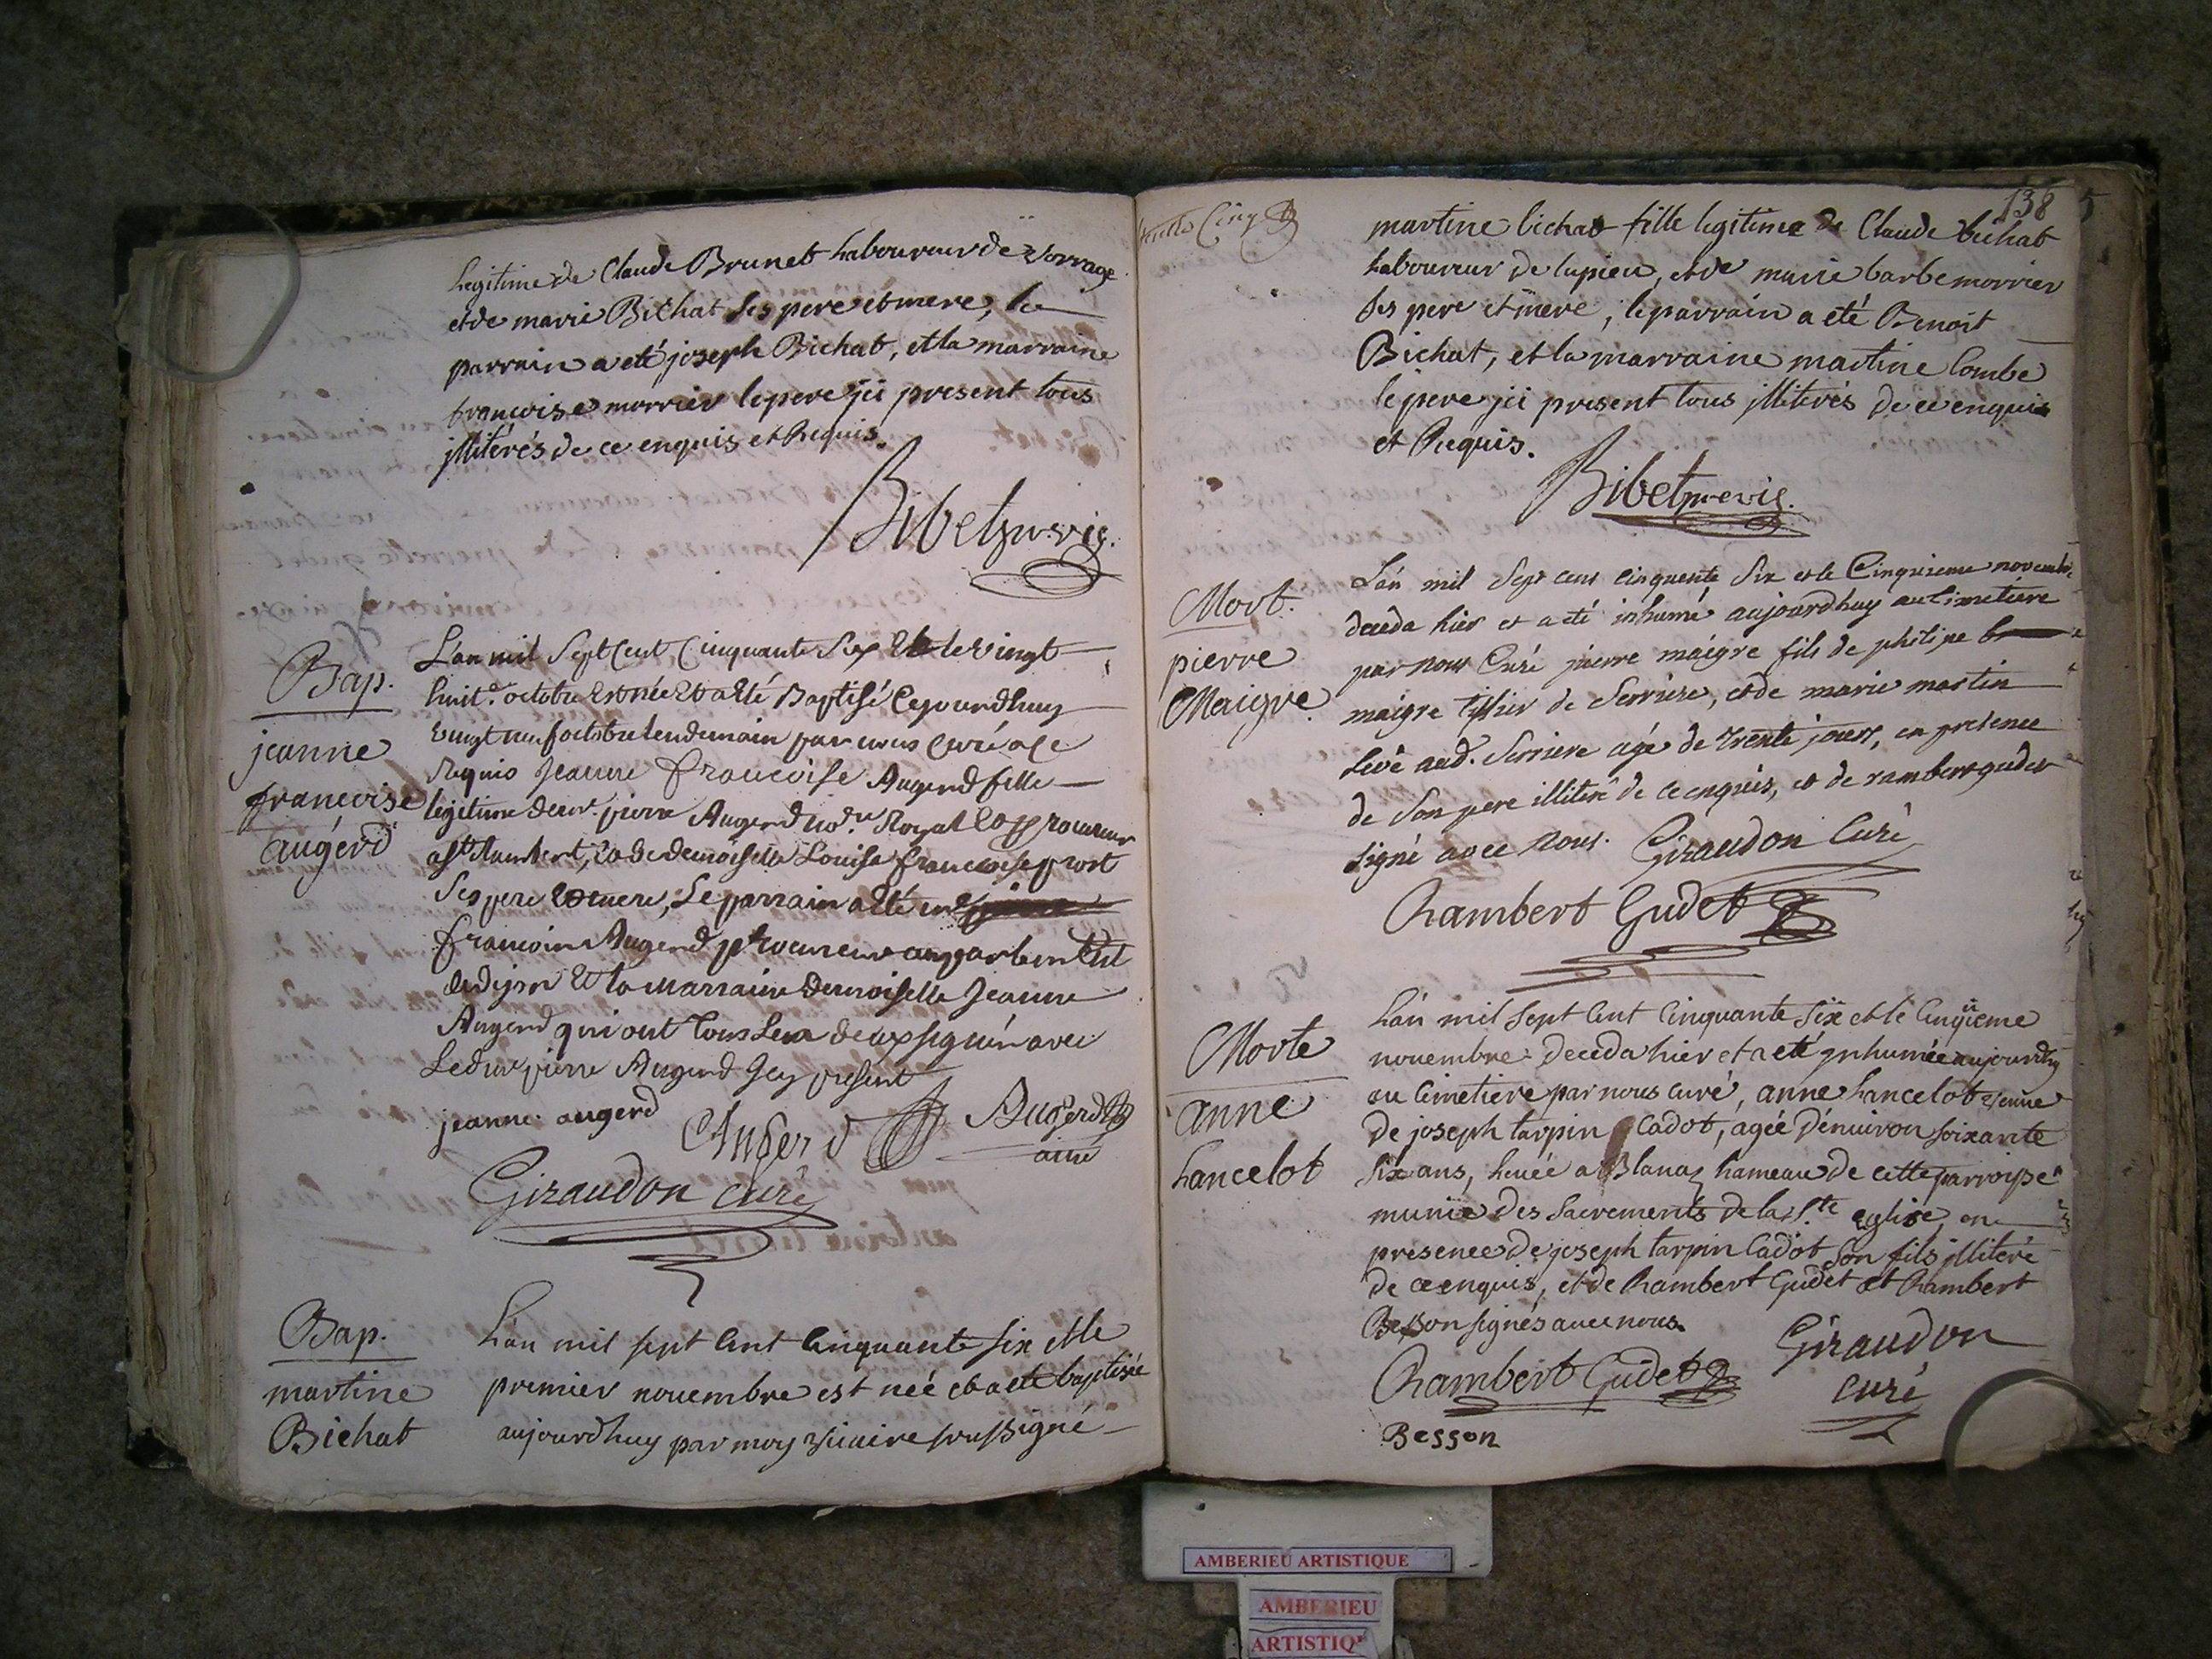 Legitime de Claude Brunet Laboureur de vorrage
et de marie Bichat ses pere et mere, le
parrain a eté joseph Bichat, et la marraine
francoise morrier le pere jci present tous
jllitérés de ce enquis et Requis.
Bibet pr. vic.
Bap.
jeanne
francoise
augérd
L'an mil Sept Cent Cinquante Six Et le vingt
huit.e octobre Est née Et a Eté Baptisé Cejourdhuy
vingt neuf octobre lendemain par nous Curé a ce
Requis Jeanne francoise Augerd fille
legitime de mr. pierre Augerd no.re Royal Et procureur
a St Rambert, Et de demoiselle Louise francoise prost
Ses pere Et mere, Le parrain a Eté mr
francois Augerd procureur au parlement
de dijon Et la Marraine Demoiselle Jeanne
Augerd qui ont tous Les deux signés avec
Led. mr pierre Augerd Jcy present
jeanne augerd Augerd Augerd
ainé
Giraudon curé
Bap.
martine
Bichat
L'an mil sept Cent Cinquante six et le
premier nouembre est neé et a eté baptisée
aujourdhuy par moy vicaire soussigné
Cinq
138
martine bichat fille legitime de Claude bichat
Laboureur de lupieu, et de marie barbe morrier
ses pere et mere, le parrain a eté Benoit
Bichat, et la marraine martine Combe
le pere jci present tous jllitérés de ce enquis
et Requis.
Bibet pr. vic.
Mort.
pierre
Maigre
L'an mil Sept cens cinquente Six et le Cinquieme novembre
deceda hier et a eté inhumé aujourdhuy au Cimetiere
par nous Curé pierre maigre fils de philipe
maigre tissier de Serriere, et de marie martin
Levé aud. Serriere agé de trente jours, en presence
de Son pere illiteré de ce enquis, et de rambert gudet
signé avec nous. Giraudon Curé
Rambert Gudet
Morte
anne
Lancelot
L'an mil sept Cent Cinquante six et le Cinqieme
nouembre deceda hier et a eté ynhumée aujourdhy
au Cimetiere par nous Curé, anne Lancelot femme
de joseph tarpin Cadot, agée d'énuiron soixante
six ans, Leuée a Blanaz hameau de cette parroisse
munie des Sacrements de la S.te eglise, en
presence de joseph tarpin Cadot son fils jlliteré
de ce enquis, et de Rambert Gudet et Rambert
Besson signés auec nous.
Giraudon
curé
Rambert Gudet
Besson
AMBERIEU ARTISTIQUE
AMBERIEU
ARTISTIQ